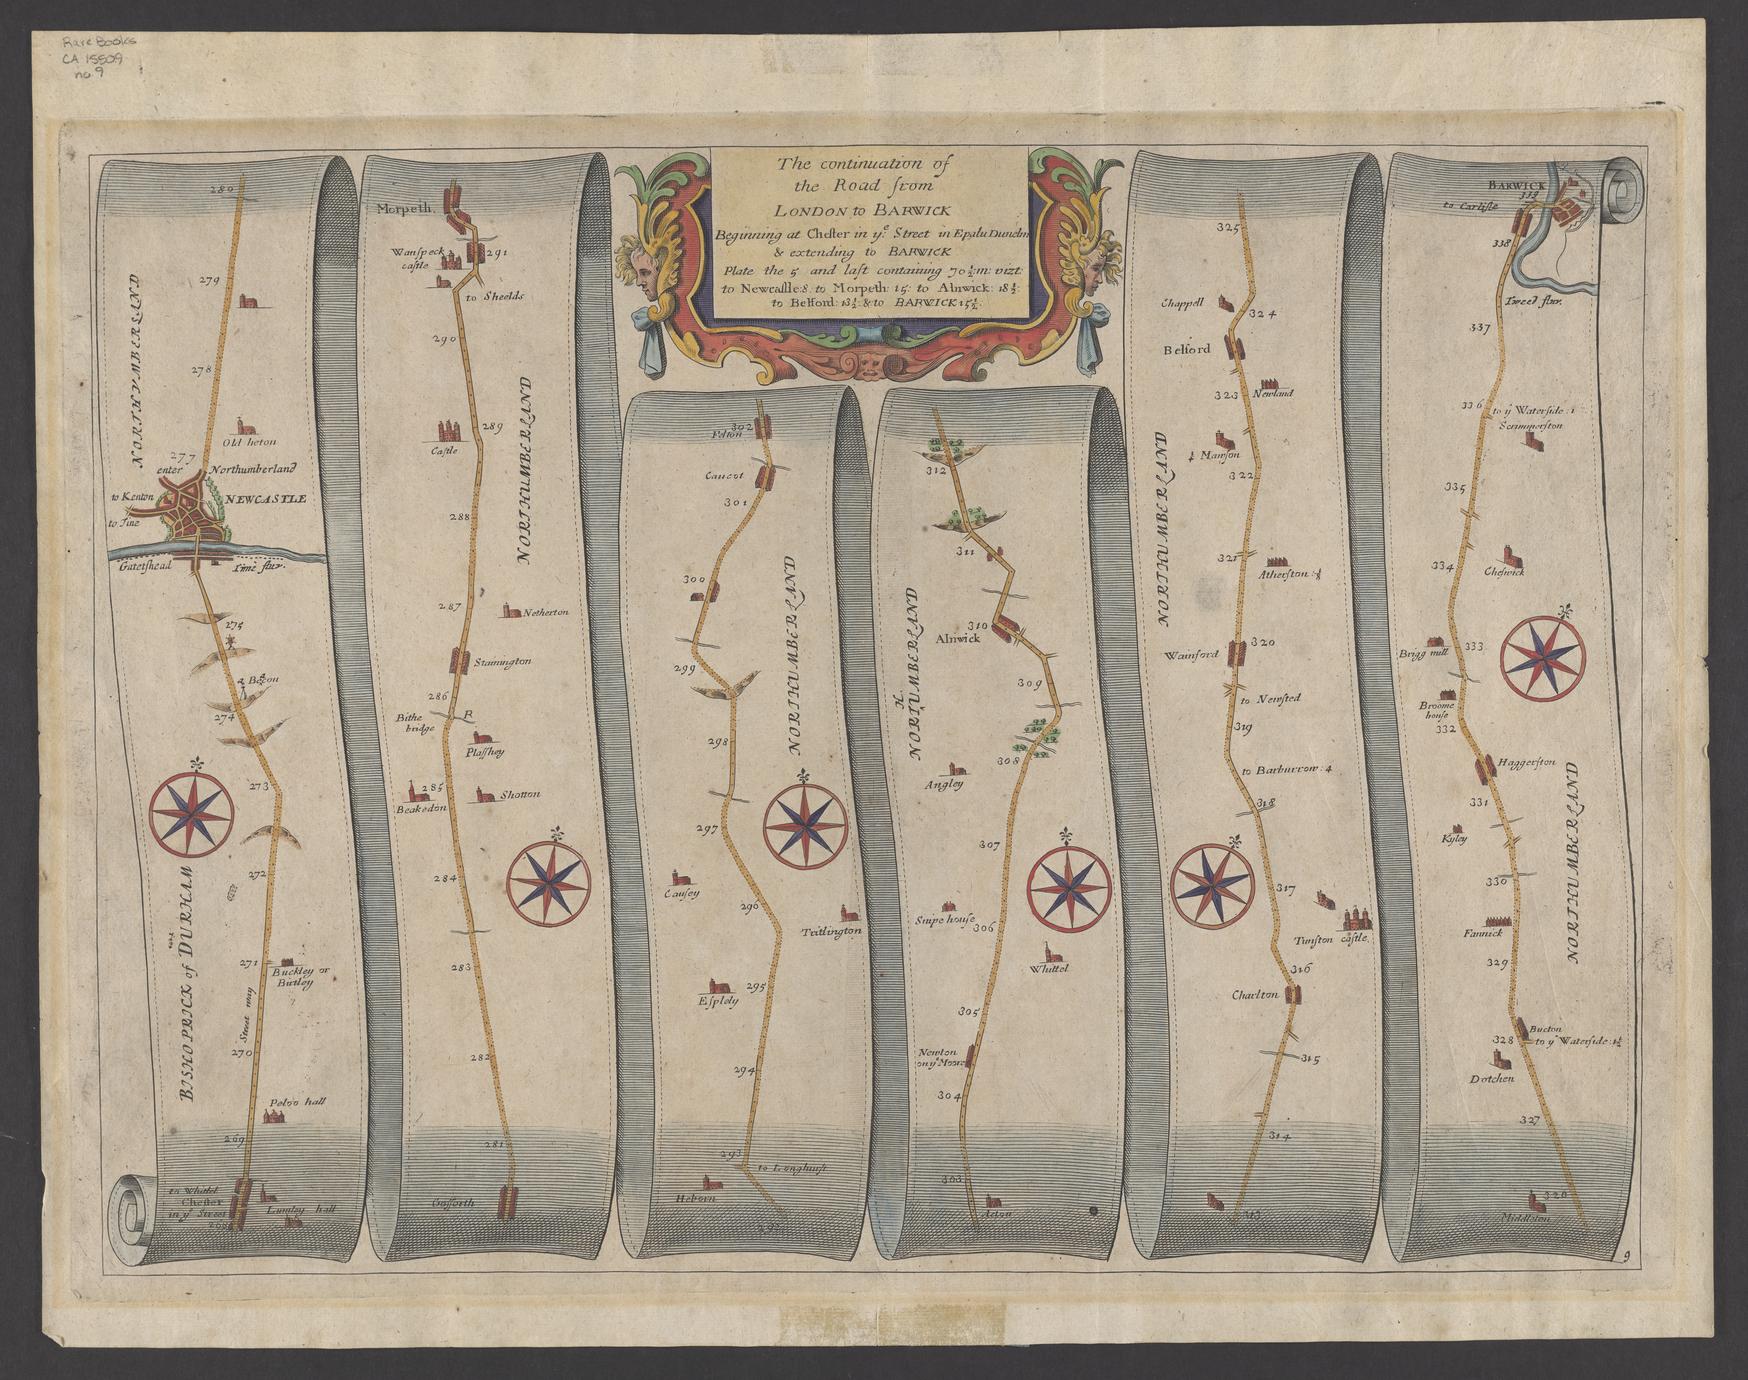 Rare Books
CA 15509
no. 9
The continuation of
the Road from
LONDON to BARWICK
Beginning at Chester in yͤ Street in Epatu Dunelm
& extending to BARWICK
Plate the 5 and last containing 70½:m: vizt:
to Newcastle:8. to Morpeth: 15: to Alnwick: 18½:
to Belford: 13½: & to BARWICK 15½.
280
279
NORTHVMBERLAND
278
Old heton
277
enter Northumberland
to Kenton
NEWCASTLE
to Tine
Gateshead
Tine fluv.
275
a Becon
274
273
272
BISHOPRICK of DURHAM
271
Buckley or
Birtley
Street way
270
Peloo hall
269
to Whitel
Chester
in yͤ Street
Lumley hall
268
Morpeth
Wanspeck
castle
291
to Sheelds
290
NORTHUMBERLAND
289
Castle
288
287
Netherton
Stannington
286
Bithe
bridge
R
Plasshey
285
Beakedon
Shotton
284
283
282
281
Gosforth
302
Felton
Caucot
301
300
NORTHUMBERLAND
299
298
297
Causey
296
Tritlington
Esplely
295
294
293
to Longhurst
Heborn
292
312
311
310
Alnwick
NORTHUMBERLAND
309
308
Angley
307
Snipe house
306
Whittel
305
Newton
on yͤ Moore
304
303
Acton
325
Chappell
324
Belford
323
Newland
Mawson
322
NORTHUMBERLAND
321
Atherston:½
320
Wainford
to Newsted
319
to Barburrow: 4
318
317
Tunston castle
316
Charlton
315
314
313
BARWICK
339
to Carlisle
338
Tweed fluv.
337
336
to yͤ Waterside: 1
Scrimmerston
335
334
Cheswick
333
Brigg mill
Broome
house
332
Haggerston
331
Kyley
NORTHUMBERLAND
330
Fannick
329
Bucton
328
to yͤ Waterside: 1½
Dotchen
327
326
Middleton
9